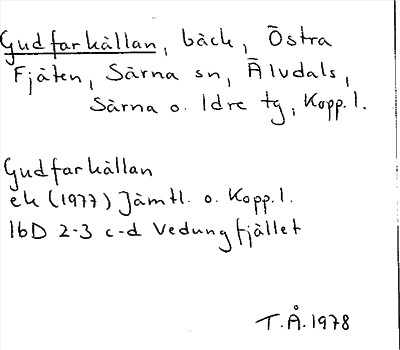 Gudfarkällan, bäck, Östra
Fjäten, Särna sn, Älvdals,
Särna o. Idre tg, Kopp. l.
Gudfarkällan
ek (1977) Jämtl. o. Kopp. l.
16D 2-3 c-d Vedungfjället
T.Å. 1978